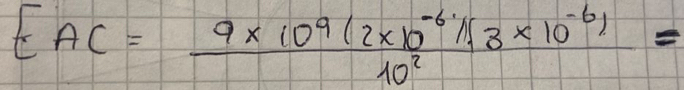 E AC = 9 x 10⁹ (2x10⁻⁶)(3 x 10⁻⁶) / 10² =